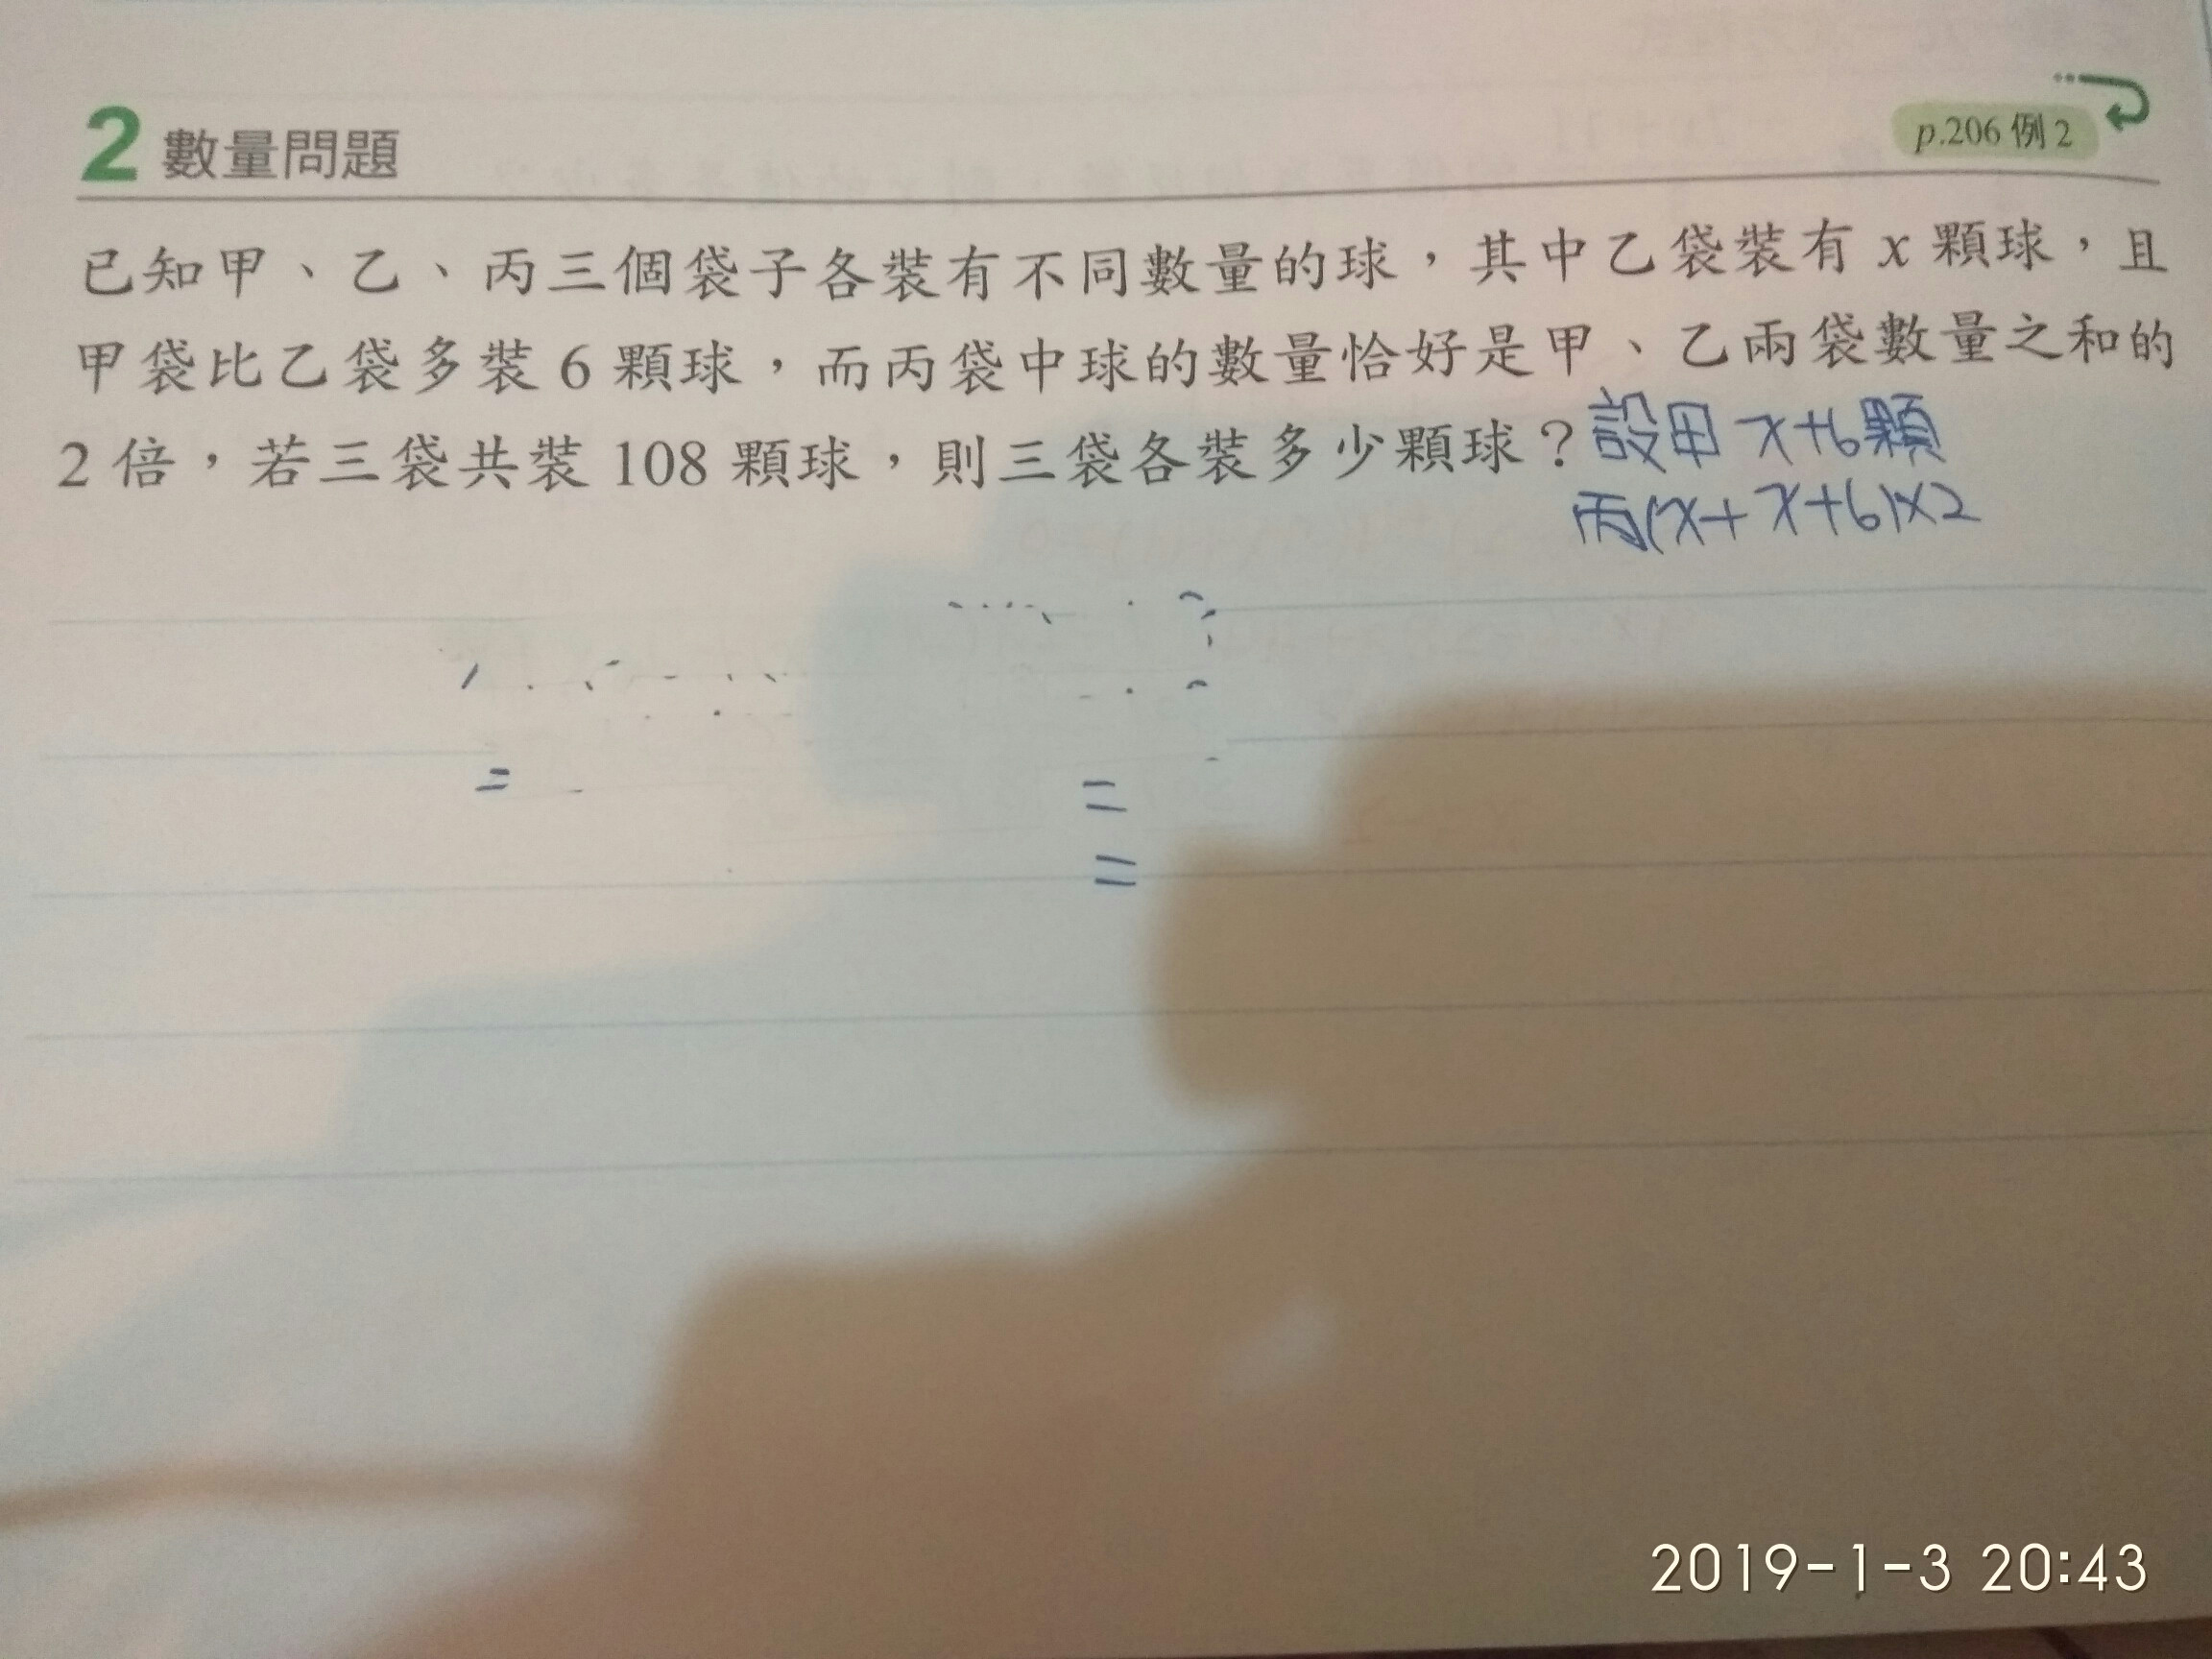 2 數量問題
p.206 例2
已知甲、乙、丙三個袋子各裝有不同數量的球，其中乙袋裝有 x 顆球，且
甲袋比乙袋多裝 6 顆球，而丙袋中球的數量恰好是甲、乙兩袋數量之和的
2 倍，若三袋共裝 108 顆球，則三袋各裝多少顆球？
設甲 x+6顆
丙(x+x+6)×2
=
=
=
2019-1-3 20:43